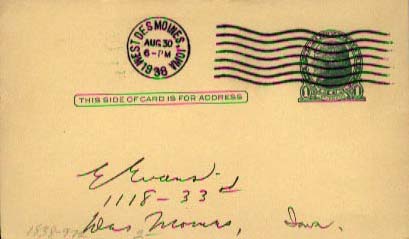 WEST DES MOINES, IOWA
AUG 30
6-PM
1938
THIS SIDE OF CARD IS FOR ADDRESS
E Evans
1118-33d
Des Moines, Iowa.